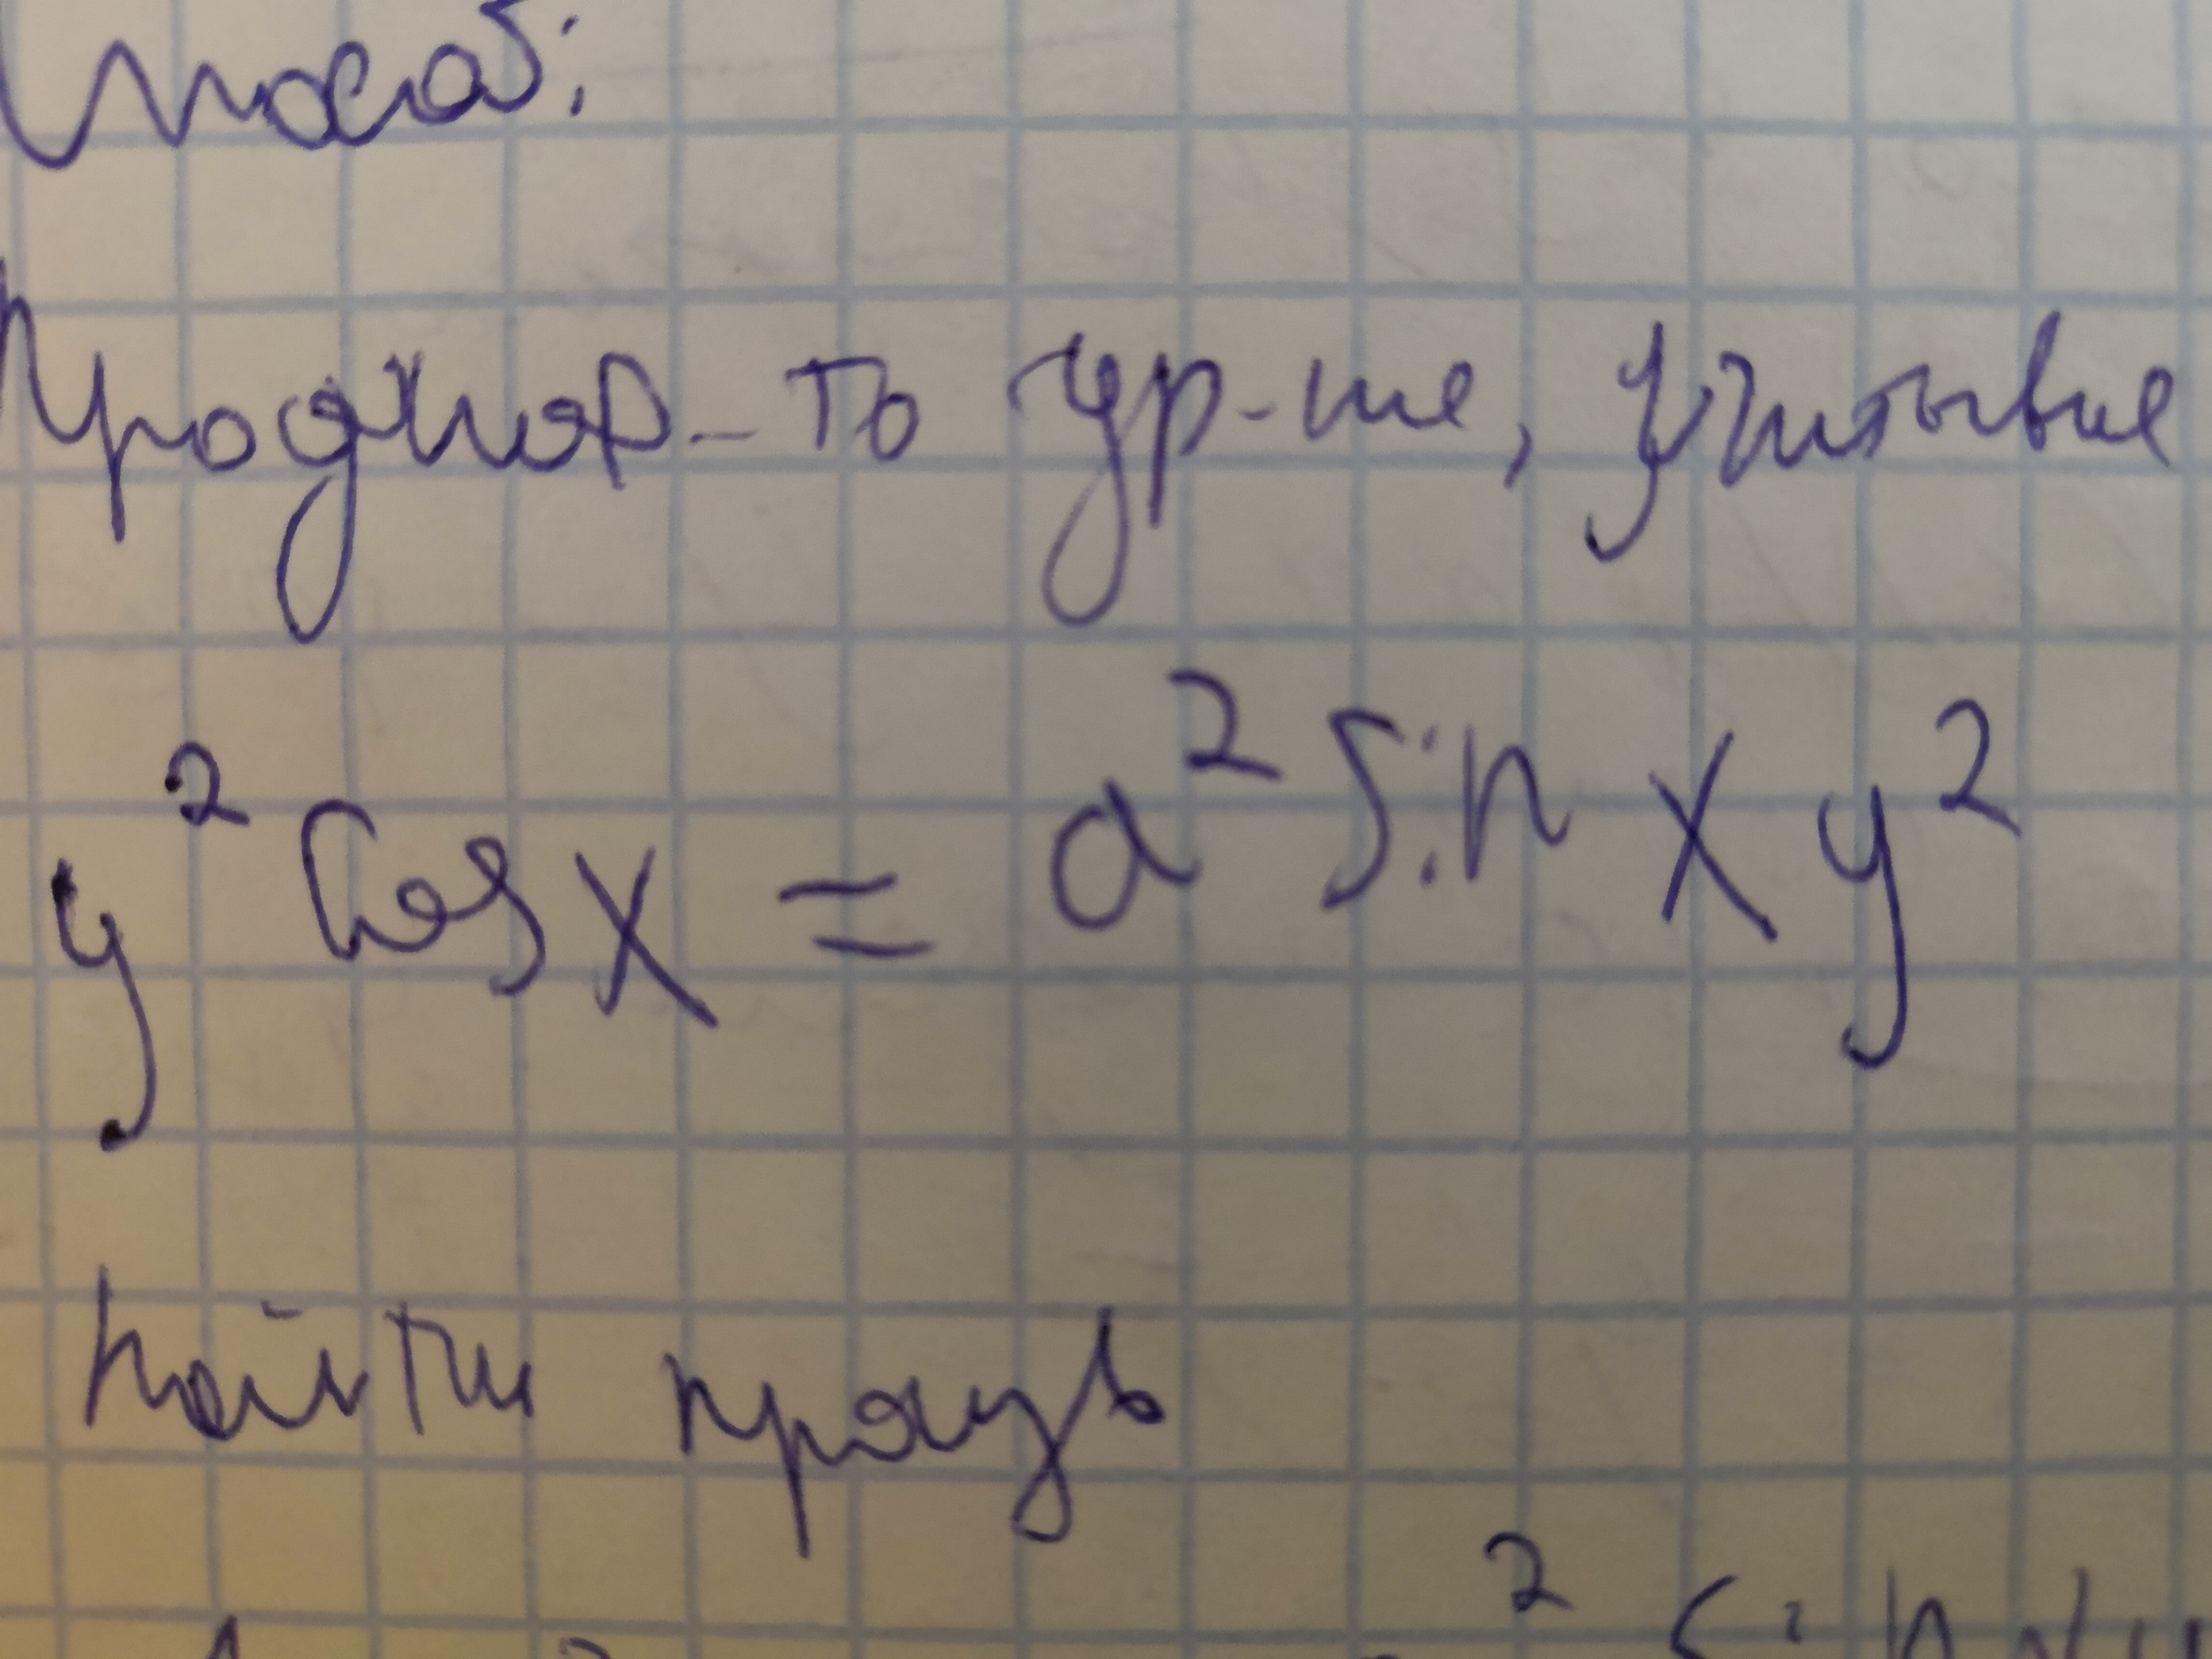 способ:
Продиф-ть ур-ие, учитывая
y² cos x = a² sin x y²
Найти произв
² sin xy